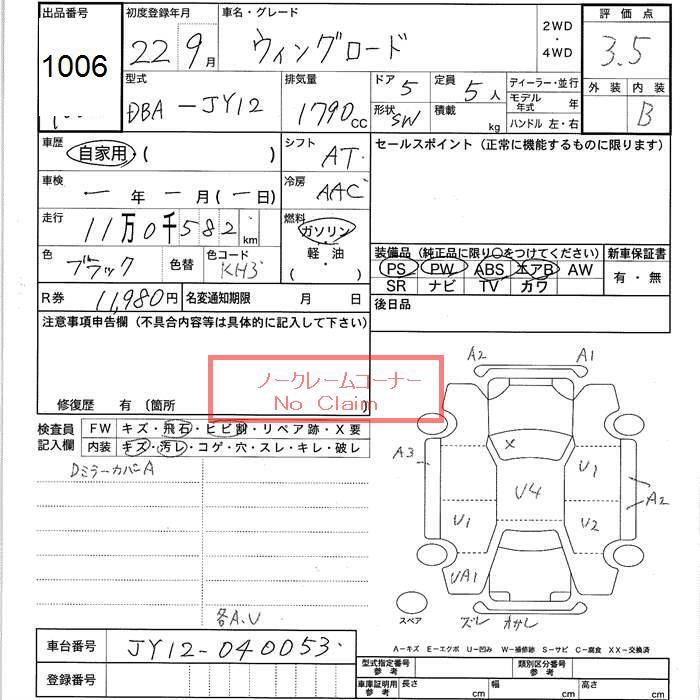 出品番号
1006
初度登録年月
22 9月
車名・グレード
ウィングロード
2WD
・
4WD
評価点
3.5
外装 内装
B
型式
DBA-JY12
排気量
1790cc
ドア 5
定員 5人
形状 SW
積載 kg
ディーラー・並行
モデル年式 年
ハンドル 左・右
車歴
自家用・( )
シフト
AT
セールスポイント(正常に機能するものに限ります)
車検
一年 一月(一日)
冷房
AAC
走行
11万0千582km
燃料
ガソリン
・
軽油
( )
色
ブラック
色替
色コード
KH3
装備品(純正品に限り○をつけてください)
新車保証書
PS PW ABS エアB AW
SR ナビ TV カワ
有・無
R券 11,980円
名変通知期限 月 日
後日品
注意事項申告欄(不具合内容等は具体的に記入して下さい)
ノークレームコーナー
No Claim
修復歴 有 〔箇所 〕
検査員
記入欄
FW キズ・飛石・ヒビ割・リペア跡・X要
内装 キズ・汚レ・コゲ・穴・スレ・キレ・破レ
DミラーカバーA
各A、U
A2 A1
A3
X
U1
U4
A2
U1
U2
UA1
スペア
ズレ カサレ
車台番号 JY12-040053
登録番号
A-キズ E-エクボ U-凹み W-補修跡 S-サビ C-腐食 XX-交換済
型式指定番号
参考
類別区分番号
参考
車庫証明用
参考
長さ cm
幅 cm
高さ cm